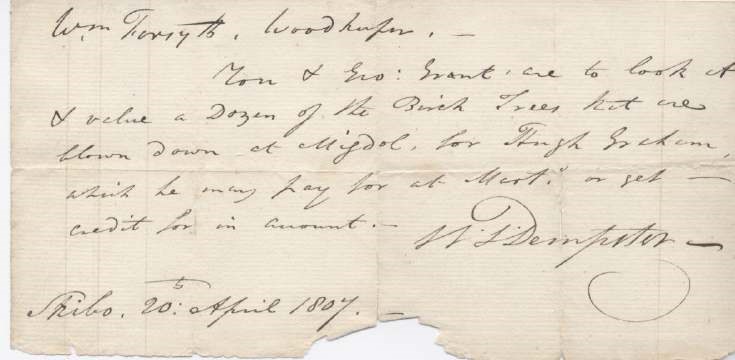 Wm Forsyth, Woodkeeper, —
You & Geo: Grant, are to look at
& value a Dozen of the Birch Trees that are
blown down at Migdol, for Hugh Graham,
which he may pay for at Mart.s or get —
credit for in account. —
Dempster —
Skibo, 20th: April 1807. —